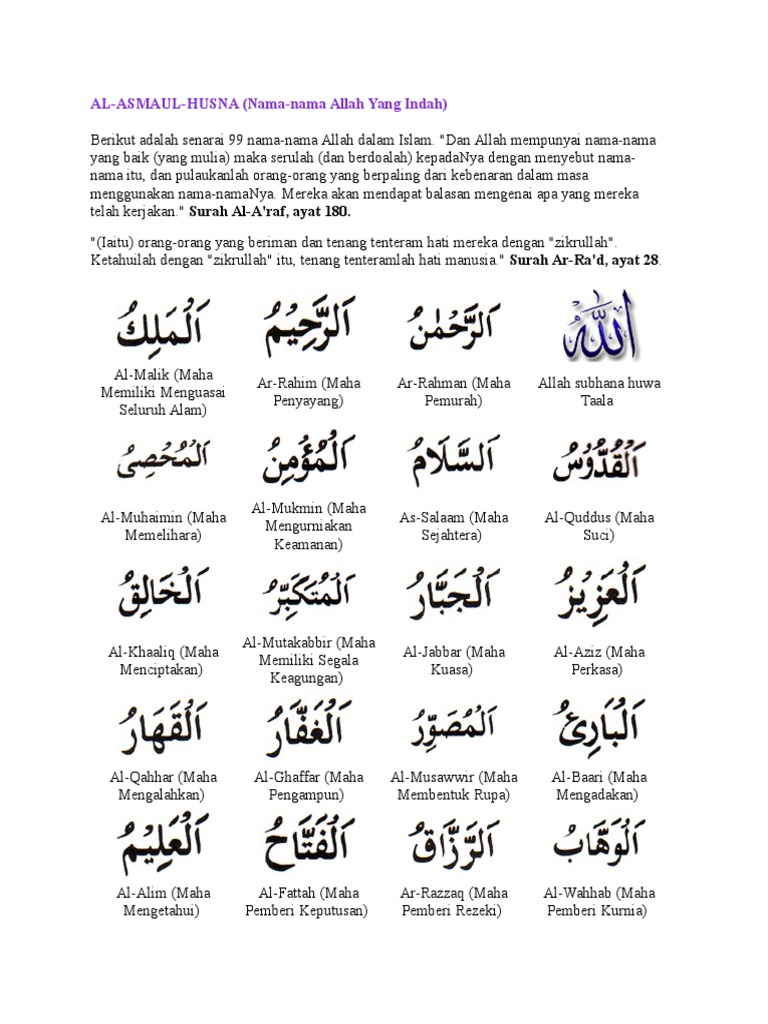 AL-ASMAUL-HUSNA (Nama-nama Allah Yang Indah)
Berikut adalah senarai 99 nama-nama Allah dalam Islam. "Dan Allah mempunyai nama-nama
yang baik (yang mulia) maka serulah (dan berdoalah) kepadaNya dengan menyebut nama-
nama itu, dan pulaukanlah orang-orang yang berpaling dari kebenaran dalam masa
menggunakan nama-namaNya. Mereka akan mendapat balasan mengenai apa yang mereka
telah kerjakan." Surah Al-A'raf, ayat 180.
"(Iaitu) orang-orang yang beriman dan tenang tenteram hati mereka dengan "zikrullah".
Ketahuilah dengan "zikrullah" itu, tenang tenteramlah hati manusia." Surah Ar-Ra'd, ayat 28.
الله
Allah subhana huwa
Taala
اَلرَّحْمٰنُ
Ar-Rahman (Maha
Pemurah)
اَلرَّحِيْمُ
Ar-Rahim (Maha
Penyayang)
اَلْمَلِكُ
Al-Malik (Maha
Memiliki Menguasai
Seluruh Alam)
اَلْقُدُّوْسُ
Al-Quddus (Maha
Suci)
اَلسَّلَامُ
As-Salaam (Maha
Sejahtera)
اَلْمُؤْمِنُ
Al-Mukmin (Maha
Mengurniakan
Keamanan)
اَلْمُحْصِىُ
Al-Muhaimin (Maha
Memelihara)
اَلْعَزِيْزُ
Al-Aziz (Maha
Perkasa)
اَلْجَبَّارُ
Al-Jabbar (Maha
Kuasa)
اَلْمُتَكَبِّرُ
Al-Mutakabbir (Maha
Memiliki Segala
Keagungan)
اَلْخَالِقُ
Al-Khaaliq (Maha
Menciptakan)
اَلْبَارِئُ
Al-Baari (Maha
Mengadakan)
اَلْمُصَوِّرُ
Al-Musawwir (Maha
Membentuk Rupa)
اَلْغَفَّارُ
Al-Ghaffar (Maha
Pengampun)
اَلْقَهَارُ
Al-Qahhar (Maha
Mengalahkan)
اَلْوَهَّابُ
Al-Wahhab (Maha
Pemberi Kurnia)
اَلرَّزَّاقُ
Ar-Razzaq (Maha
Pemberi Rezeki)
اَلْفَتَّاحُ
Al-Fattah (Maha
Pemberi Keputusan)
اَلْعَلِيْمُ
Al-Alim (Maha
Mengetahui)